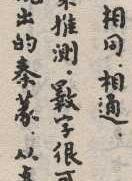 相同.相通.
推测.數字很可
出的秦篆.以